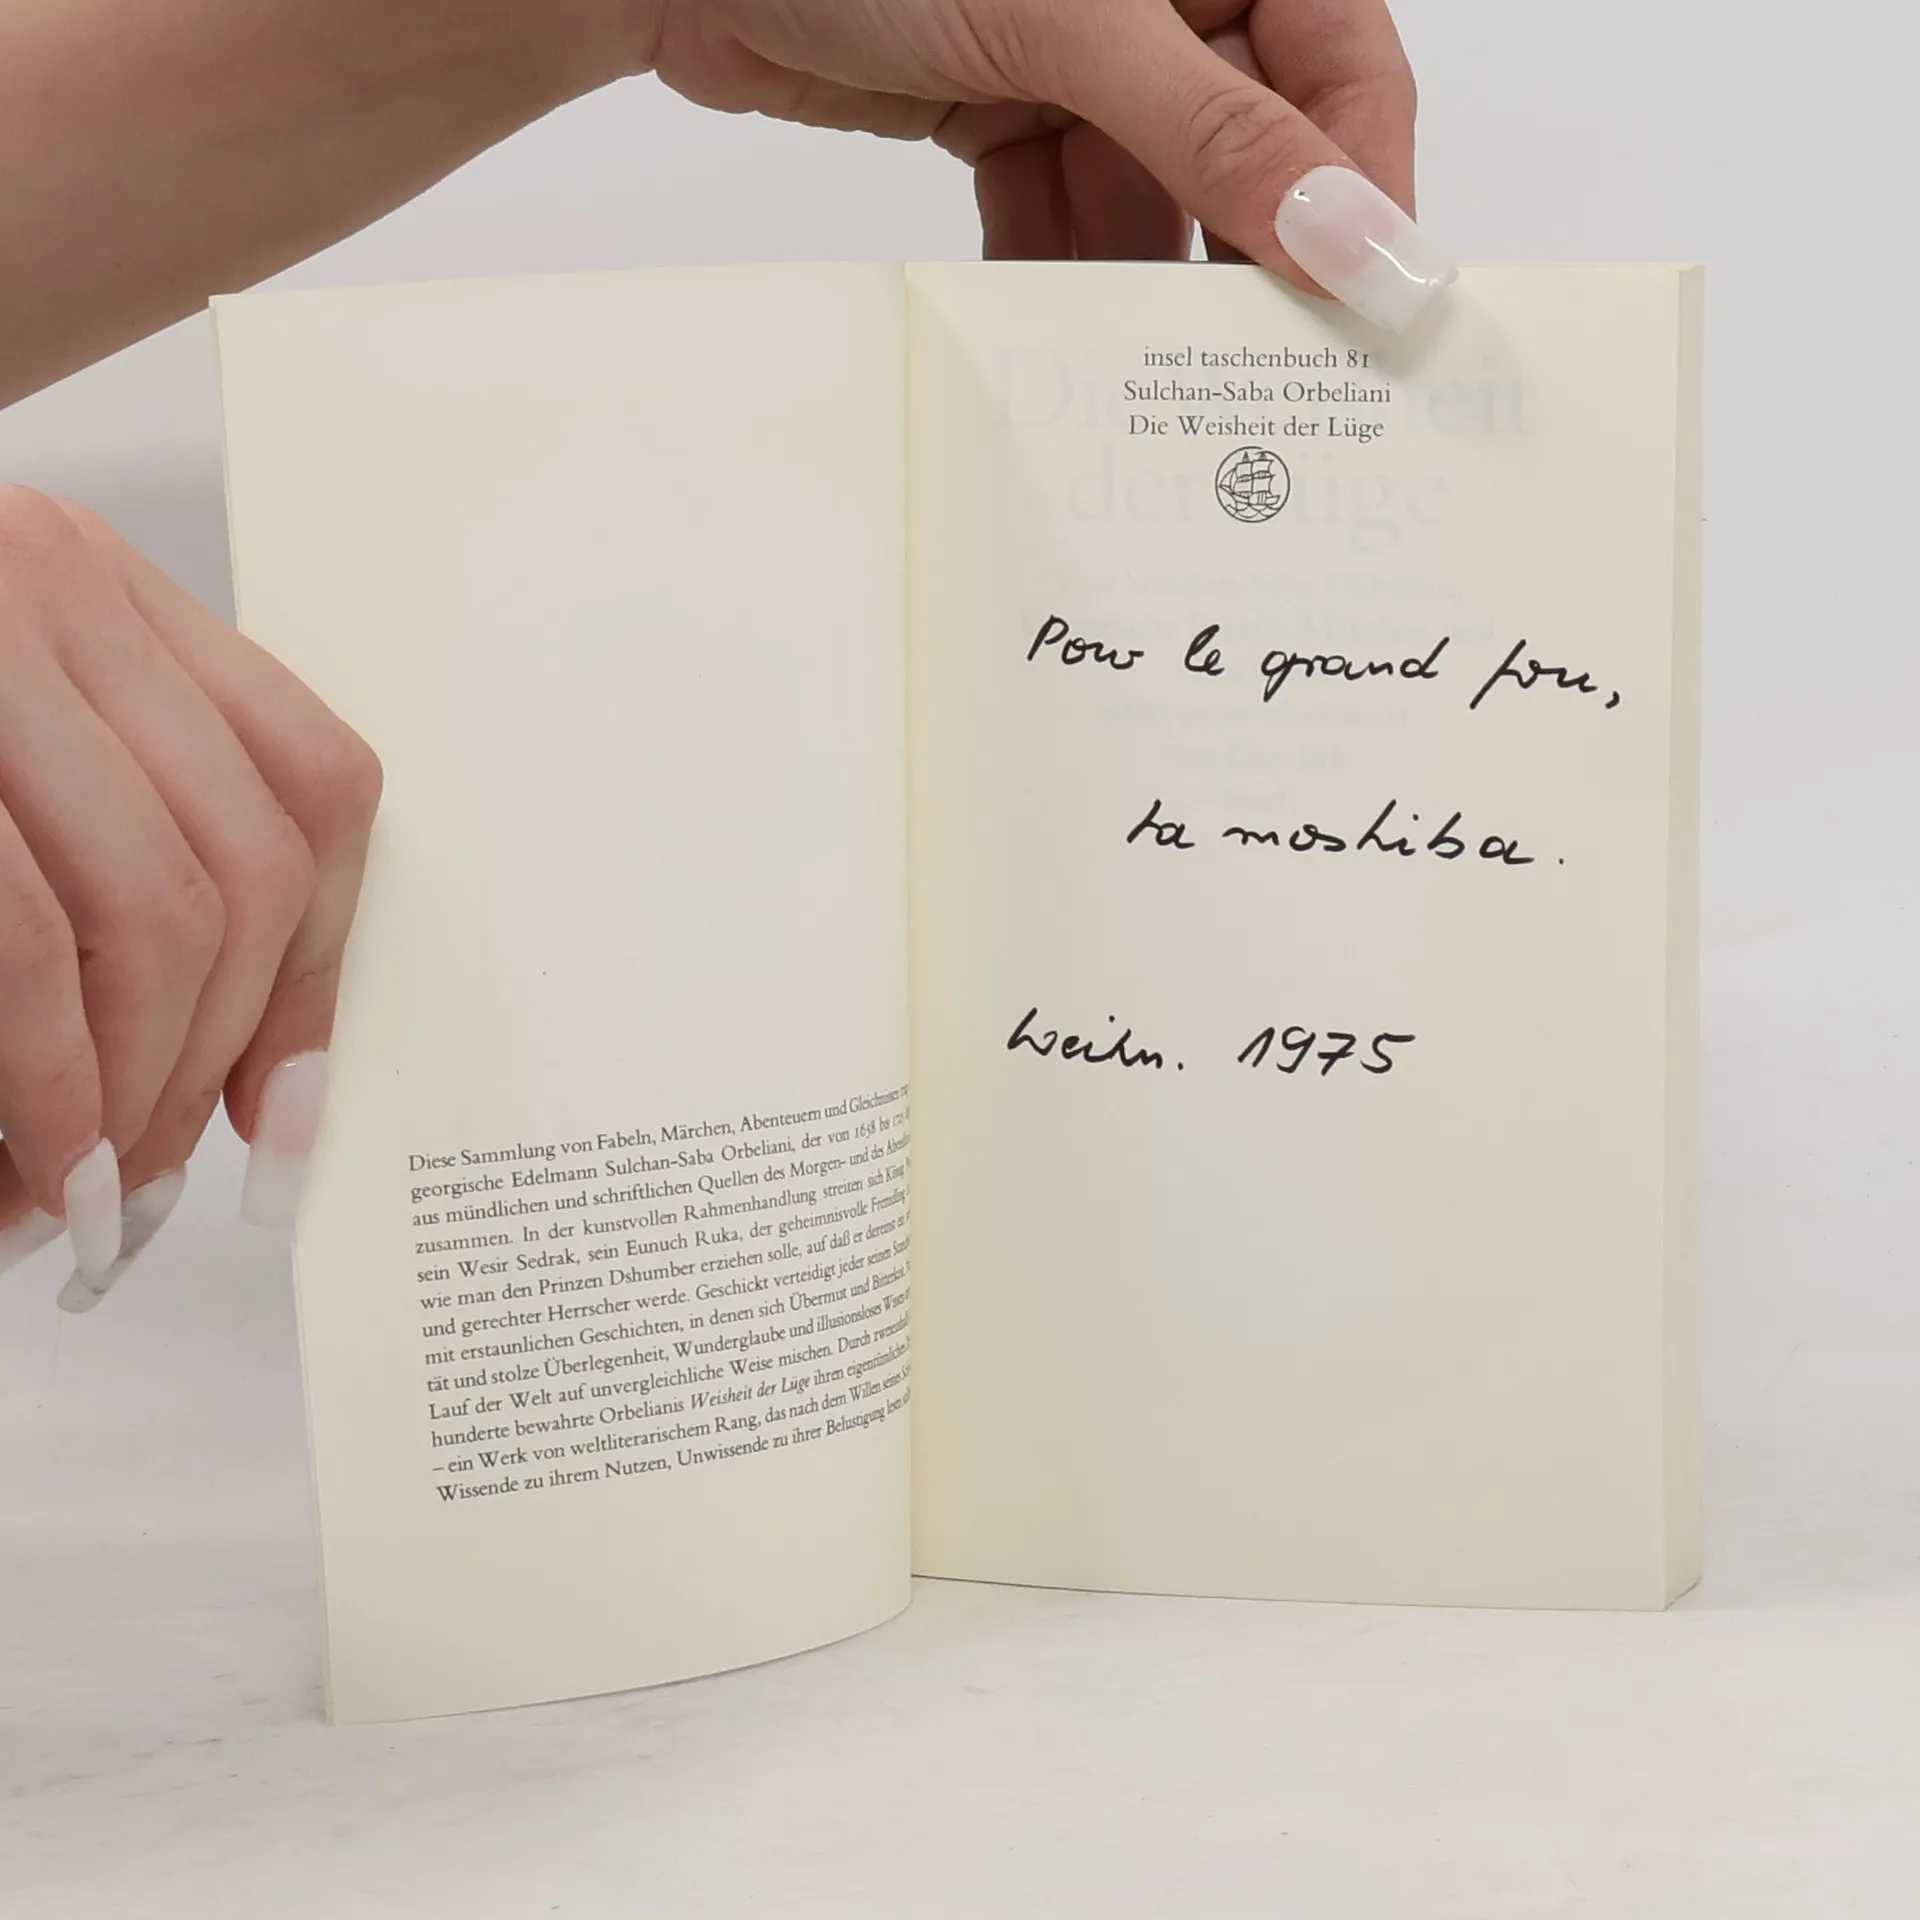 Diese Sammlung von Fabeln, Märchen, Abenteuern und Gleichnissen
georgische Edelmann Sulchan-Saba Orbeliani, der von 1658 bis
aus mündlichen und schriftlichen Quellen des Morgen- und des
zusammen. In der kunstvollen Rahmenhandlung streiten sich König
sein Wesir Sedrak, sein Eunuch Ruka, der geheimnisvolle Fremdling
wie man den Prinzen Dshumber erziehen solle, auf daß er dereinst ein
und gerechter Herrscher werde. Geschickt verteidigt jeder seinen
mit erstaunlichen Geschichten, in denen sich Übermut und Bitterkeit,
tät und stolze Überlegenheit, Wunderglaube und illusionsloses Wissen
Lauf der Welt auf unvergleichliche Weise mischen. Durch
hunderte bewahrte Orbelianis Weisheit der Lüge ihren eigentümlichen
– ein Werk von weltliterarischem Rang, das nach dem Willen seines
Wissende zu ihrem Nutzen, Unwissende zu ihrer Belustigung lesen
insel taschenbuch 81
Sulchan-Saba Orbeliani
Die Weisheit der Lüge
Pour le grand fou,
ta moshiba.
Weihn. 1975